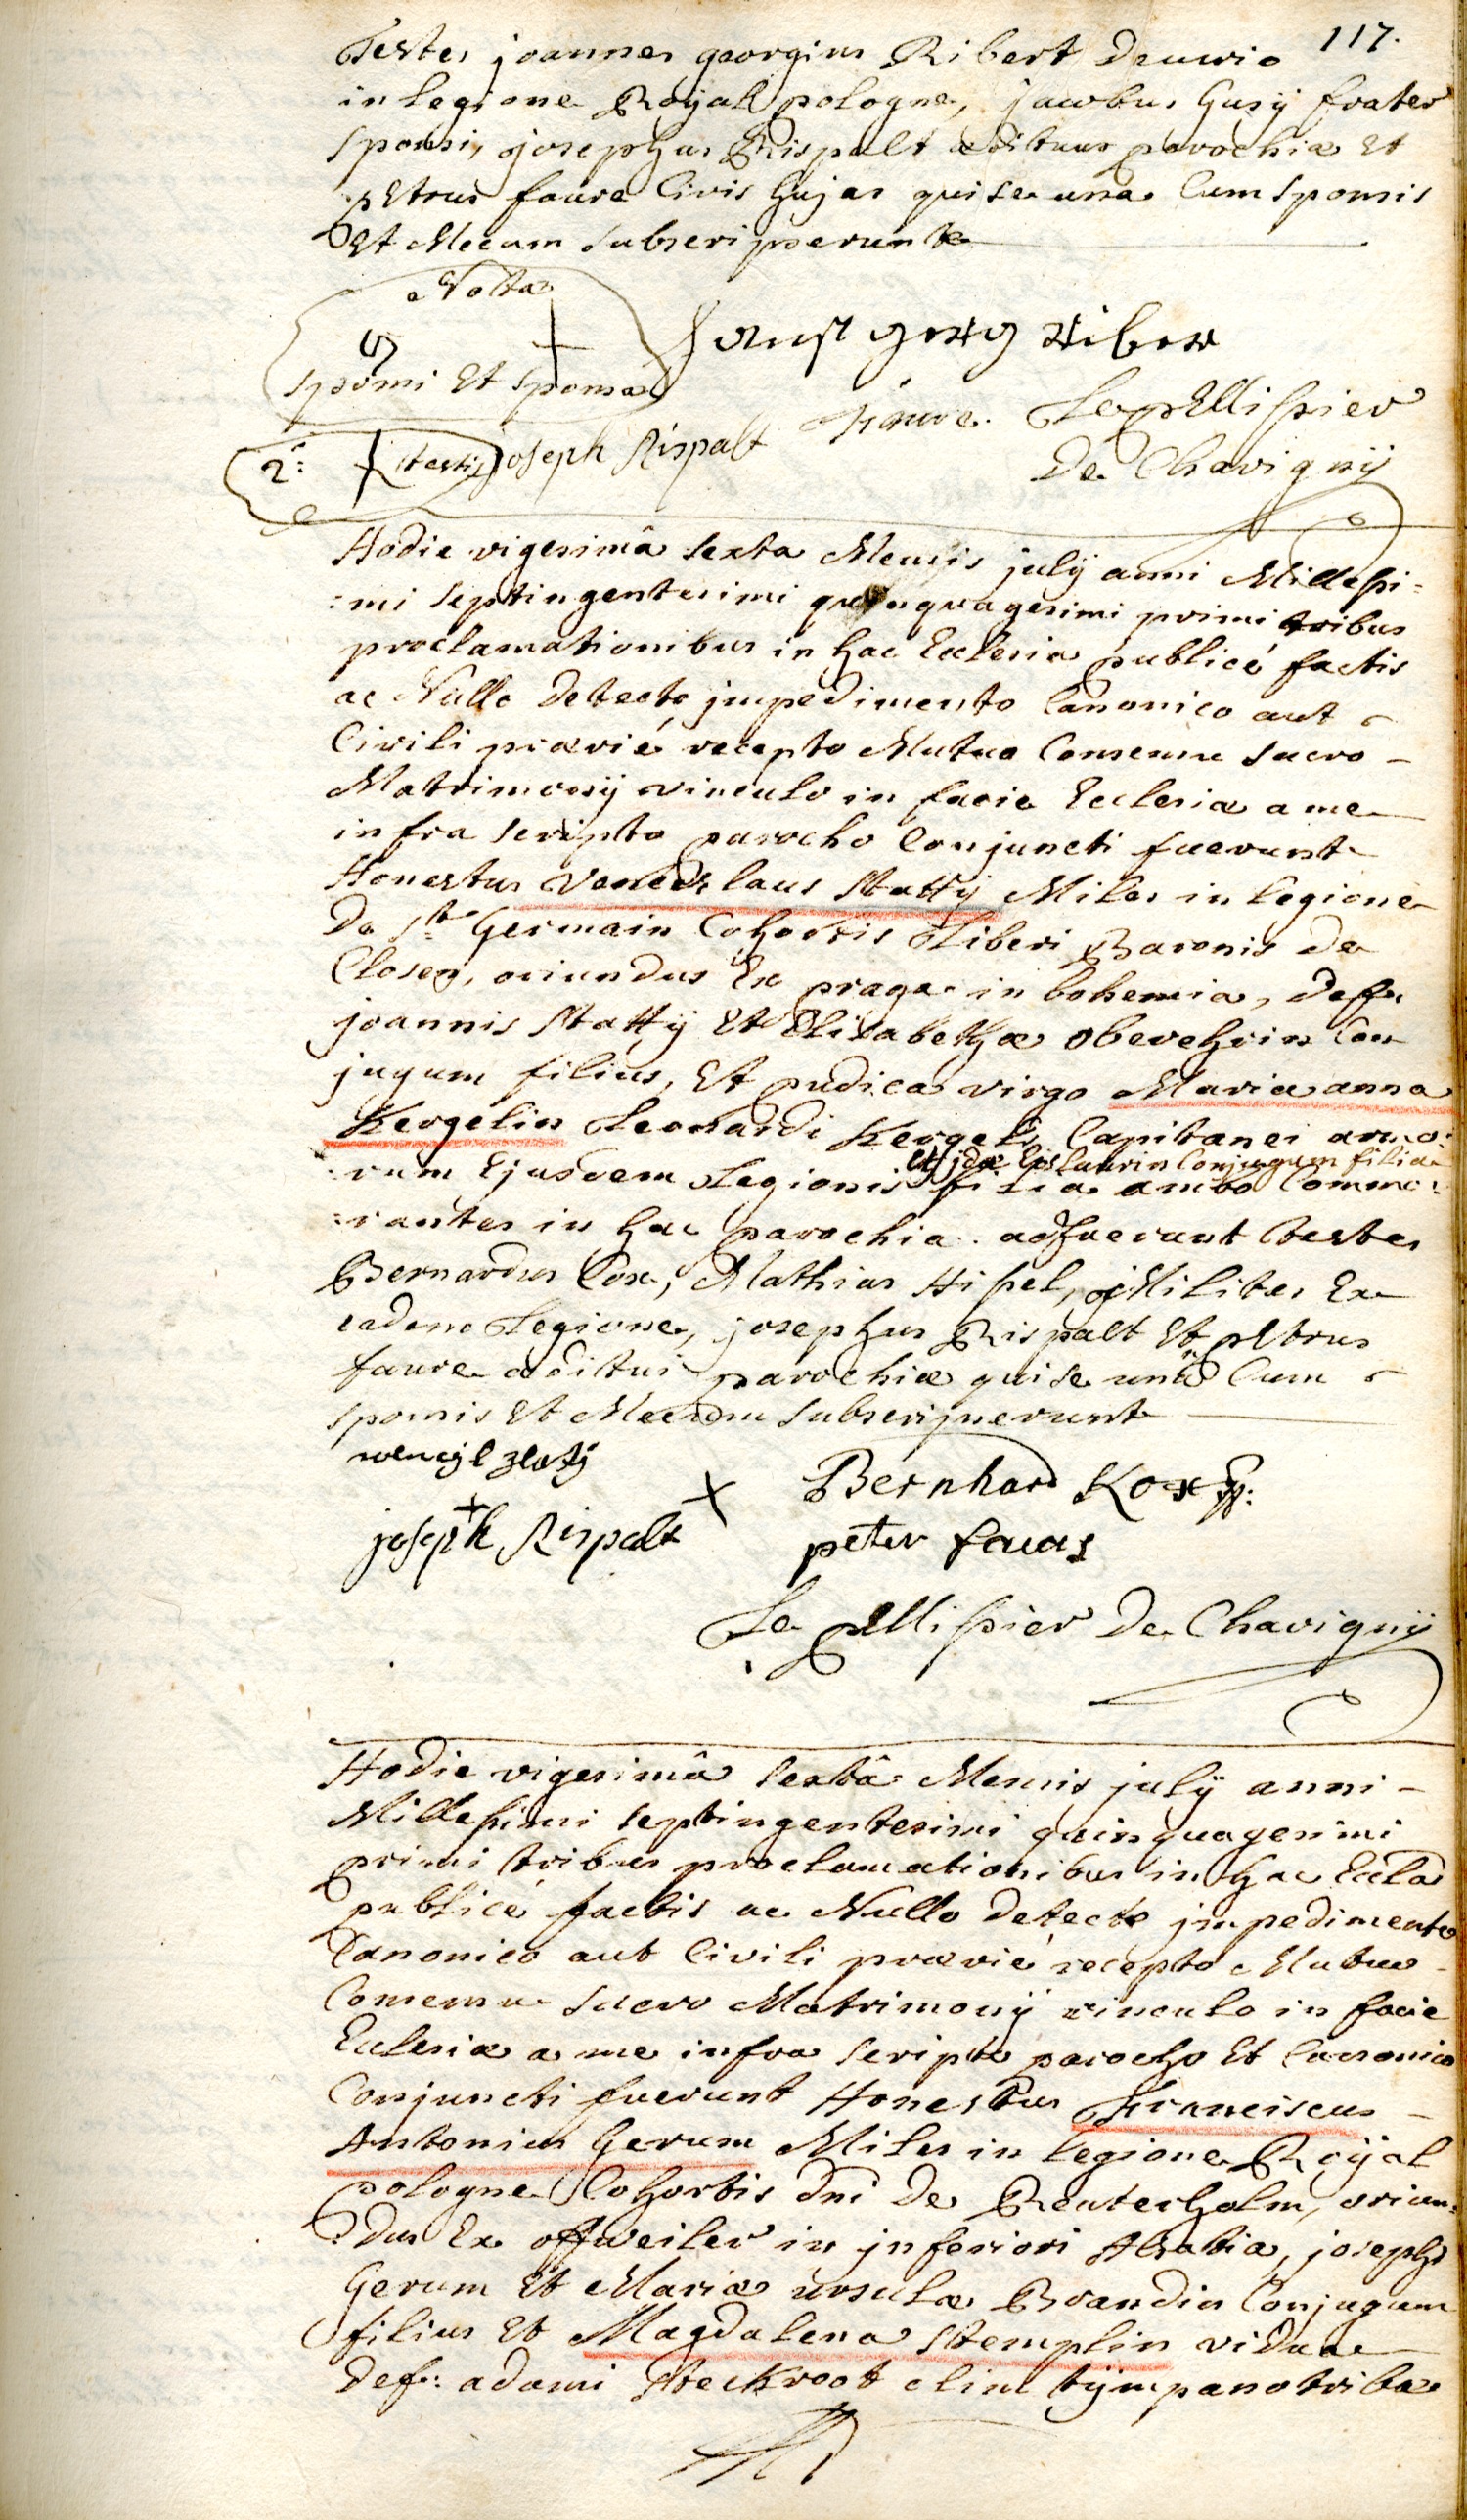 117.
Testes joannes georgius Ribert Deuwio
in legione Royal pologne, jacobus Gusÿ frater
sponsi, josephus Rispalt ædituus parochiæ Et
pEtrus faure Civis hujas qui se una Cum sponsis
Et Mecum subscripserunt
Notta
sponsi Et sponsæ
Ribert
faure. Le pEllissier
2ª: testis joseph Rispalt
De Chavignÿ
Hodie vigesimâ sexta Mensis julÿ anni Millesi-
:mi septingentesimi quinquagesimi primi tribus
proclamationibus in hac Ecclesia publicé factis
ac Nullo detecto jmpedimento Canonico aut
Civili prævié recepto Mutuo Consensu sacro -
Matrimonÿ vinculo in facie Ecclesiæ a me
infra scripto parocho Conjuncti fuerunt
Honestus Venceslaus Stattÿ Miles in legione
De St Germain Cohortis Liberi Baronis de
Closen, oriundus Ex praga in bohemia, deff:
joannis Stattÿ Et Elisabethæ oberehrin Con
jugum filius, Et pudica virgo Maria anna
Kergelin Leonardi Kergels Capitanei armo:
Et jdæ Lurin Conjugum filia
:rum Ejusdem Legionis filia ambo Commo:
:rantes in hac parochia. adfuerunt testes
Bernardus Cox, Mathias Hissel, Milites Ex
eadem Legione, josephus Rispalt Et pEtrus
faure æditui parochiæ qui se unâ Cum
sponsis Et Mecum subscripserunt
wencyl zlatÿ
+ × Bernhard Kox
joseph Rispalt
peter fauas
Le pEllissier De Chavignÿ
Hodie vigesimâ sextâ Mensis julÿ anni -
Millesimi septingentesimi quinquagesimi
primi tribus proclamationibus in hac Eccla
publicé factis ac Nullo detecto jmpedimento
Canonico aut Civili prævié recepto Mutuo
Consensu sacro Matrimonÿ vinculo in facie
Ecclesiæ a me infra scripto parocho Et Canonico
Conjuncti fuerunt Honestus Franciscus -
Antonius Gerum Miles in legione Roÿal
pologne Cohortis dni de Reuterholm, oriun:
:dus Ex offweiler in jnferiori Alsatia, josephi
Gerum Et Mariæ ursulæ Brandin Conjugum
filius Et Magdalena Stemplin vidua
def: adami Steckroot olim tÿmpanotribæ